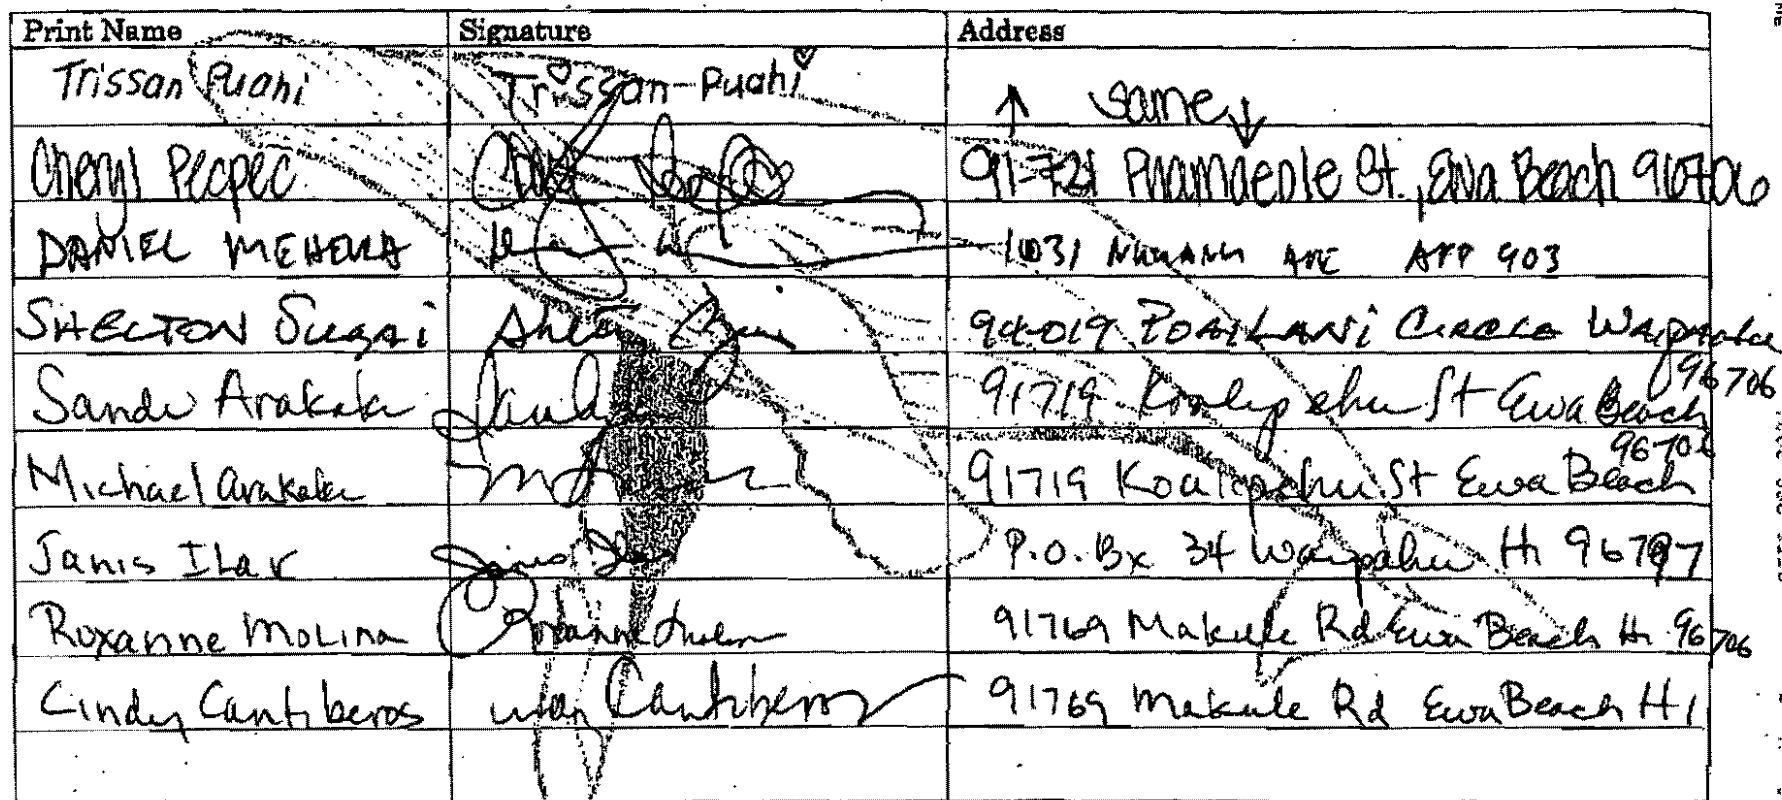 Print Name Signature Address
Trissan Puahi Trissan Puahi ↑ same ↓
Cheryl Pecpec 91-721 St., Ewa Beach 96706
DANIEL MEHEULA 1031 NUUANU AVE APT 903
SHELTON Sugai 94-019 POAILANI CIRCLE Waipahu
Sande Arakaki 91719 St Ewa Beach 96706
Michael Arakaki 91719 St Ewa Beach 96706
Janis Ilar Janis Ilar P.O. Bx 34 Waipahu Hi 96797
Roxanne Molina Roxanne Molina 91769 Makule Rd Ewa Beach Hi 96706
Cindy Cantiberos Cantiberos 91769 Makule Rd Ewa Beach HI